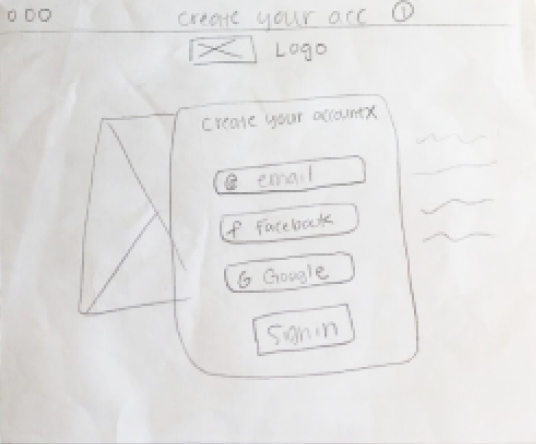 000 Create your acc 1
Logo
Create your account X
@ email
f Facebook
G Google
Sign in